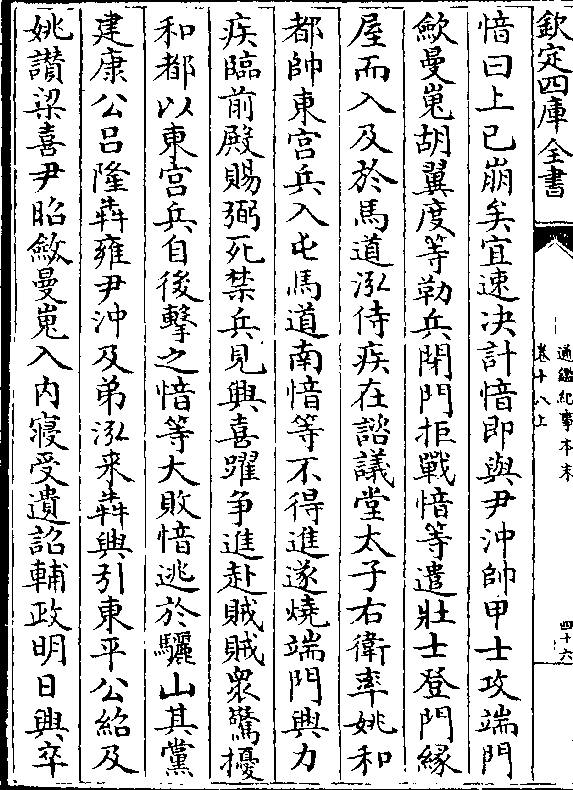 欽定四庫全書
通鑑紀事本末
卷十八上
四十六
愔曰上已崩矣宜速决計愔即與尹沖帥甲士攻端門
歛曼嵬胡翼度等勒兵閉門拒戰愔等遣壯士登門緣
屋而入及於馬道泓侍疾在諮議堂太子右衛率姚和
都帥東宫兵入屯馬道南愔等不得進遂燒端門興力
疾臨前殿賜弼死禁兵見興喜躍争進赴賊賊衆驚擾
和都以東宫兵自後擊之愔等大敗愔逃於驪山其黨
建康公呂隆犇雍尹沖及弟泓来犇興引東平公紹及
姚讃梁喜尹昭歛曼嵬入内寢受遺詔輔政明日興卒